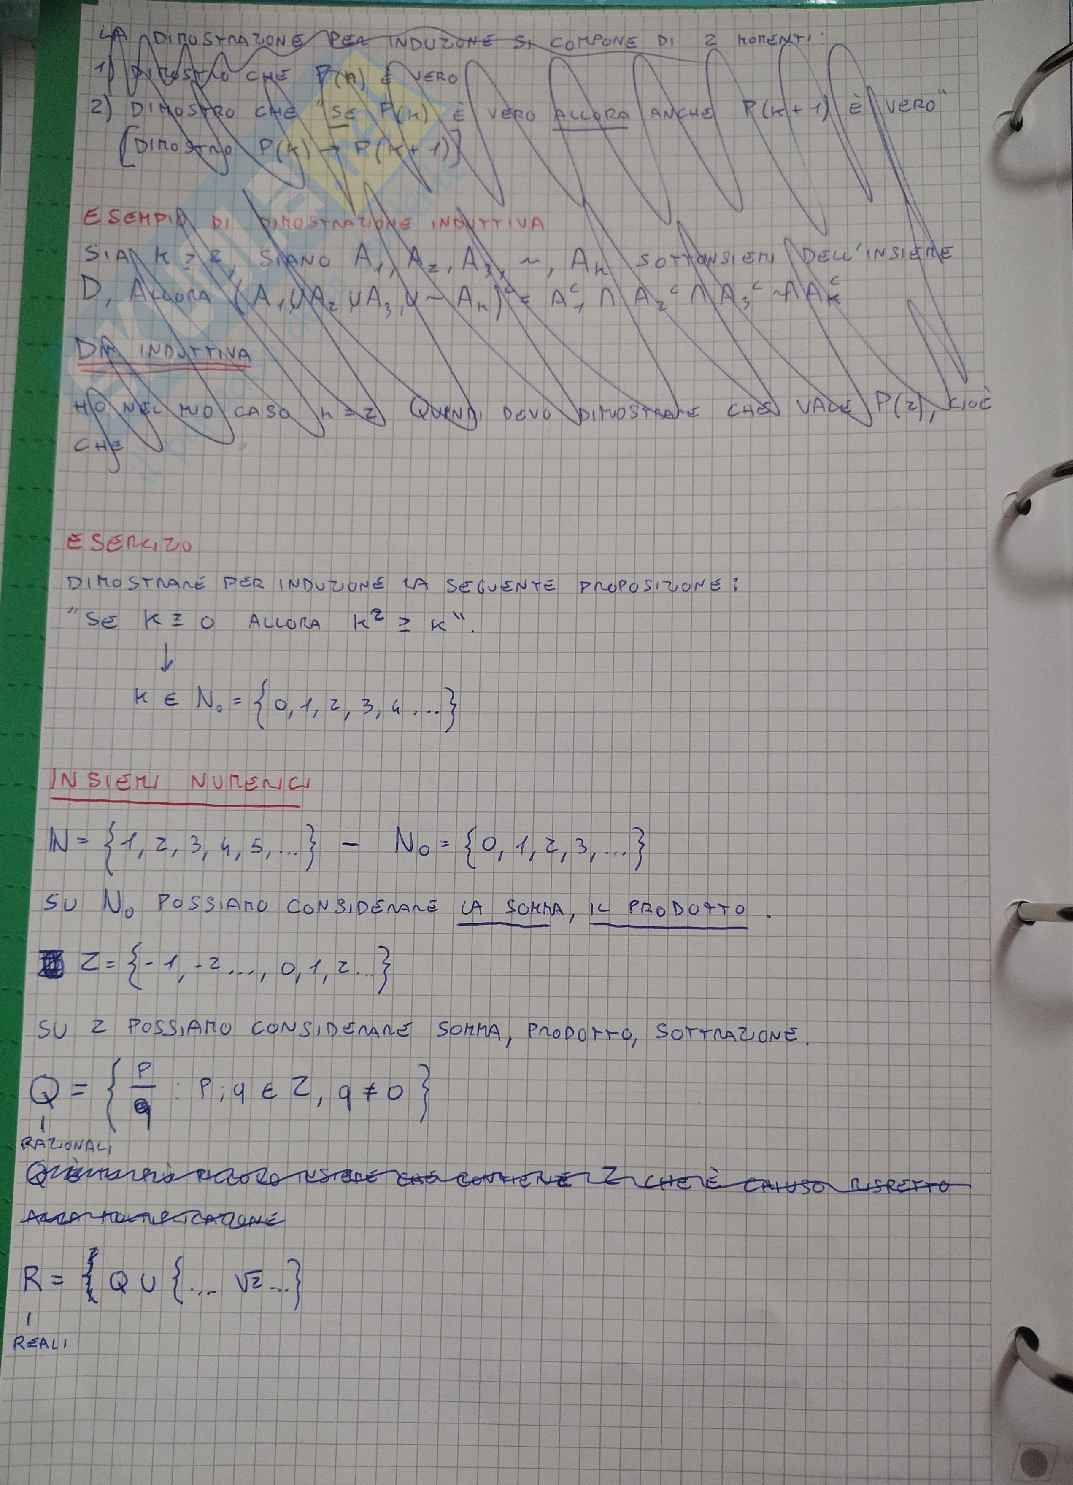 LA DIMOSTRAZIONE PER INDUZIONE SI COMPONE DI 2 MOMENTI:
1) DIMOSTRO CHE P(n) È VERO
2) DIMOSTRO CHE "SE P(k) È VERO ALLORA ANCHE P(k+1) È VERO"
[DIMOSTRO P(k) → P(k+1)]
ESEMPIO DI DIMOSTRAZIONE INDUTTIVA
SIA k ≥ 2, SIANO A1, A2, A3, ~, Ak SOTTONSIEMI DELL'INSIEME
D, ALLORA (A1 ∪ A2 ∪ A3 ∪ ~ Ak)ᶜ = A1ᶜ ∩ A2ᶜ ∩ A3ᶜ ~ ∩ Akᶜ
DIM INDUTTIVA
HO NEL MIO CASO n = 2 QUINDI DEVO DIMOSTRARE CHE VALE P(2), CIOÈ
CHE
ESERCIZIO
DIMOSTRARE PER INDUZIONE LA SEGUENTE PROPOSIZIONE:
"SE K ≥ 0 ALLORA K² ≥ K".
↓
K ∈ N₀ = {0, 1, 2, 3, 4 ...}
INSIEMI NUMERICI
N = {1, 2, 3, 4, 5, ...} - N₀ = {0, 1, 2, 3, ...}
SU N₀ POSSIAMO CONSIDERARE LA SOMMA, IL PRODOTTO.
Z = {-1, -2 ..., 0, 1, 2 ...}
SU Z POSSIAMO CONSIDERARE SOMMA, PRODOTTO, SOTTRAZIONE.
Q = {p/q : P; q ∈ Z, q ≠ 0}
RAZIONALI
Q È IL PIÙ PICCOLO INSIEME CHE CONTIENE Z CHE È CHIUSO RISPETTO
ALLA MOLTIPLICAZIONE
R = { Q ∪ {... √2 ...}
REALI